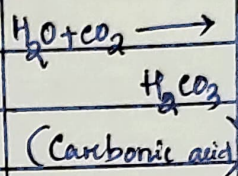 H₂O + CO₂ ⟶
H₂CO₃
(Carbonic acid)